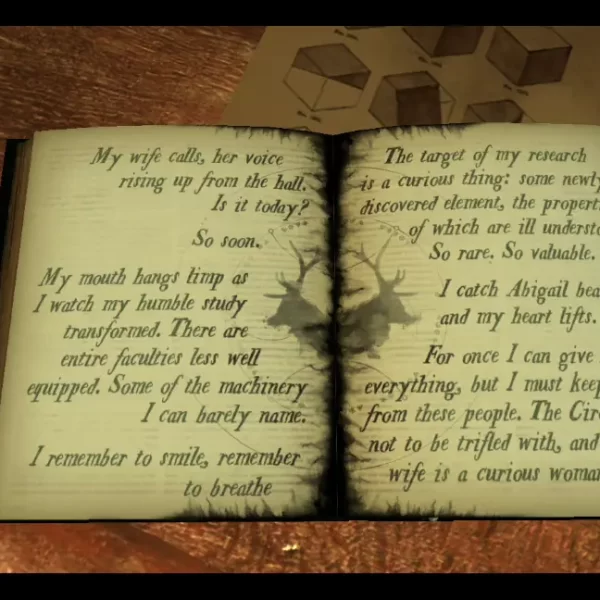 My wife calls, her voice
rising up from the hall.
Is it today?
So soon.
My mouth hangs limp as
I watch my humble study
transformed. There are
entire faculties less well
equipped. Some of the machinery
I can barely name.
I remember to smile, remember
to breathe
The target of my research
is a curious thing: some newly
discovered element, the
of which are ill
So rare. So valuable.
I catch Abigail
and my heart lifts.
For once I can give
everything, but I must keep
from these people. The
not to be trifled with, and
wife is a curious